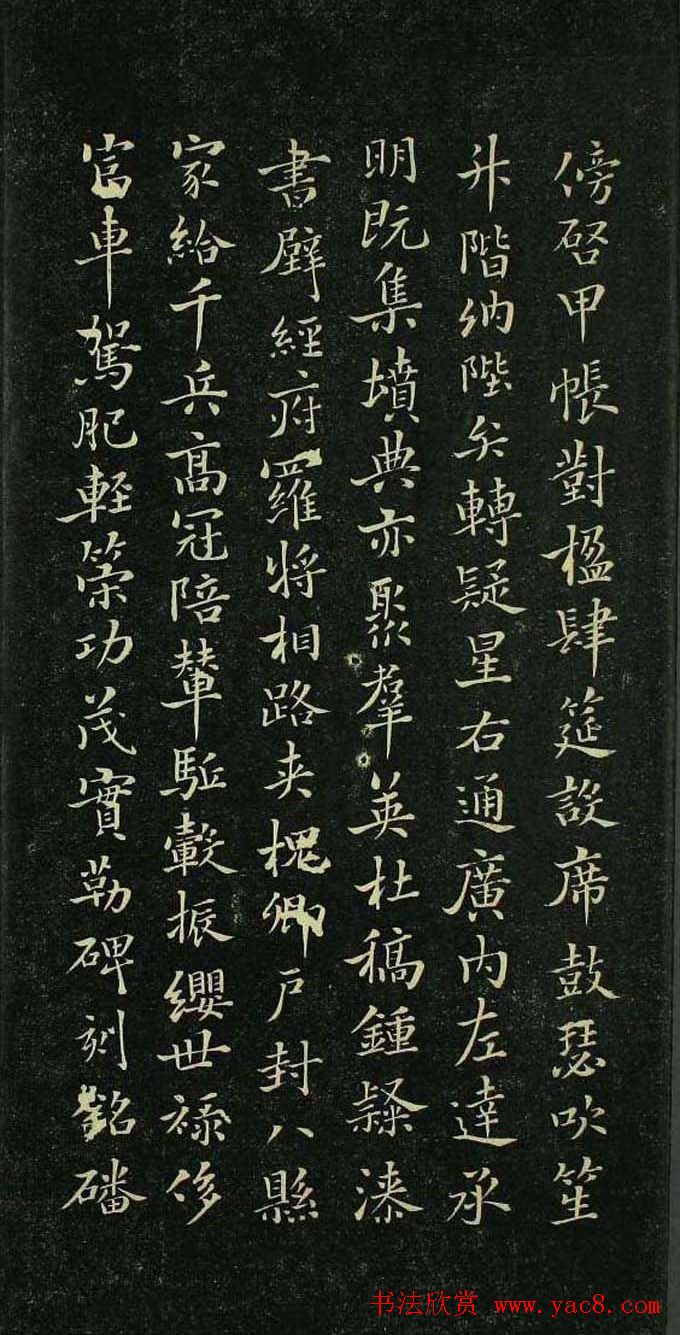 傍啓甲帳對楹肆筵設席鼓瑟吹笙
升階納陛弁轉疑星右通廣内左達承
明既集墳典亦聚羣英杜稿鍾隸漆
書壁經府羅將相路夾槐卿戶封八縣
家給千兵高冠陪輦驅轂振纓世祿侈
富車駕肥輕策功茂實勒碑刻銘磻
书法欣赏 www.yac8.com